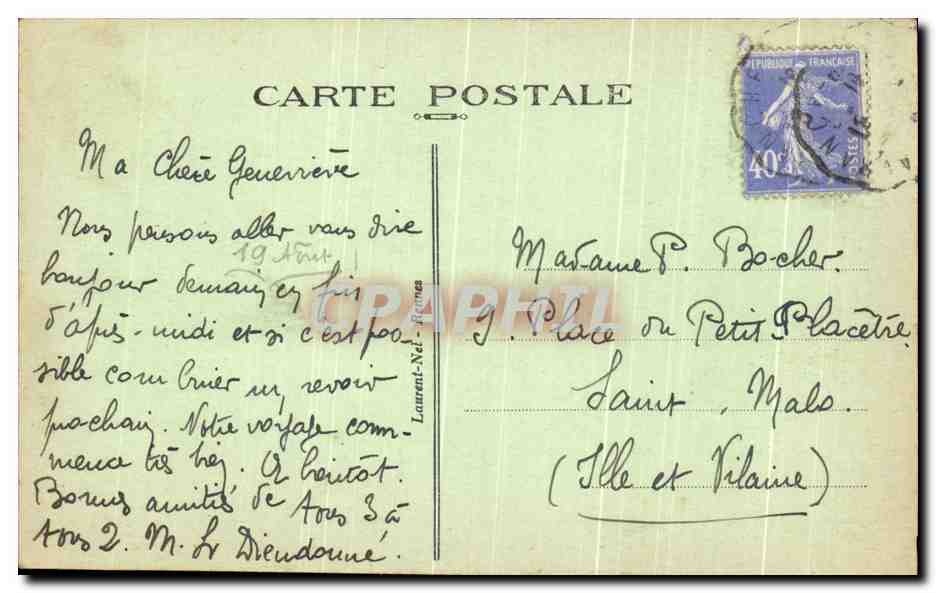 CARTE POSTALE
REPUBLIQUE FRANÇAISE
40c
POSTES
Ma Chère Geneviève
Nous pensons aller vous dire
19 Août !
bonjour demain en fin
d'après-midi et si c'est pos-
sible combiner un revoir
prochain. Notre voyage com-
mence très bien. A bientôt.
Bonnes amitiés de tous 3 à
tous 2. M. Dieudonné.
Laurent-Nel - Rennes
CPAPHIL
Madame P. Bocher.
9. Place du Petit Placêtre
Saint, Malo.
(Ille et Vilaine)